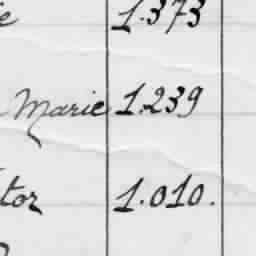 1.373
Marie 1.239
tor 1.010.